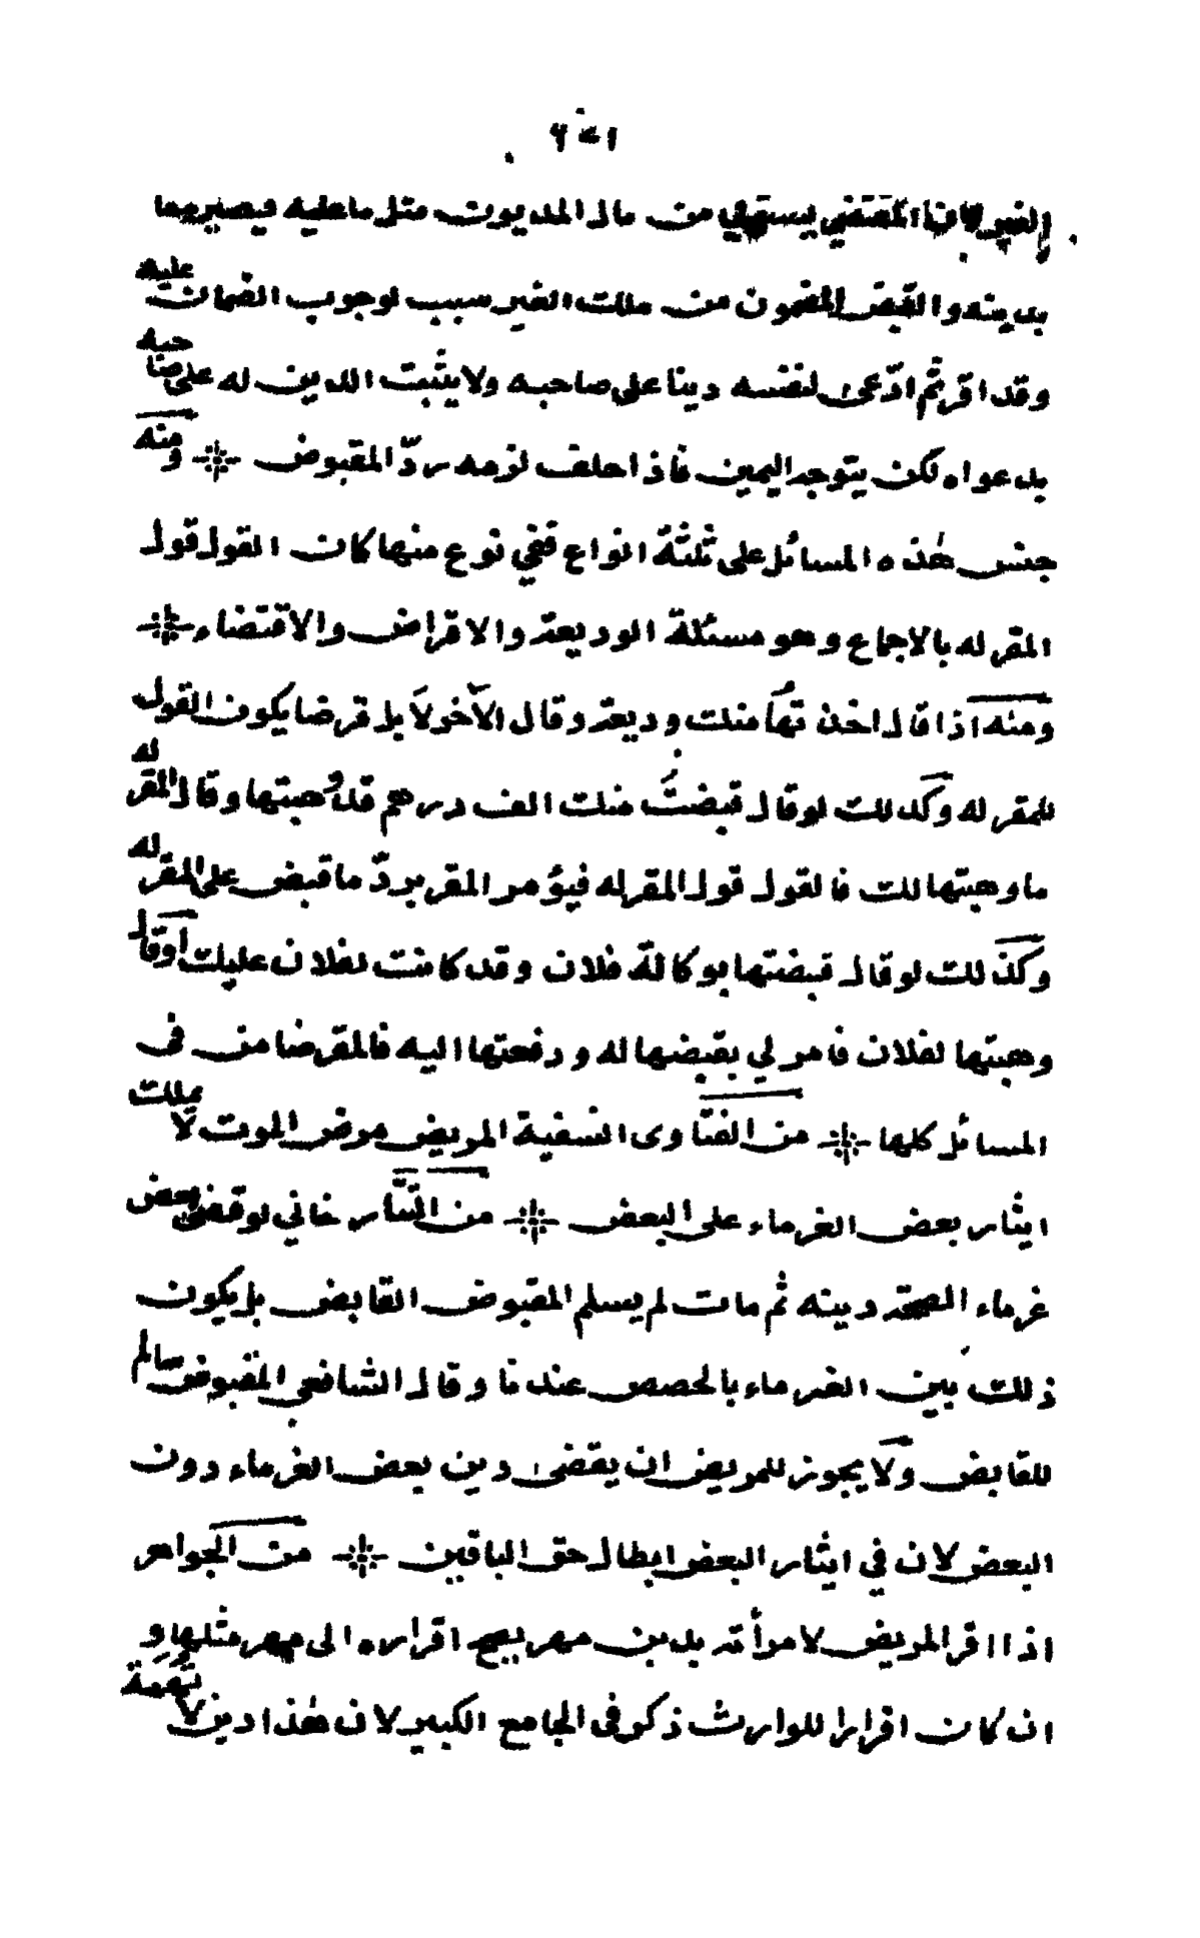 الغير لان المقتضي يستوفي من مال المديون مثل ما عليه فيصير مما
بدينه والقبض المضمون من ملك الغير سبب لوجوب الضمان عليه
وقد اقر ثم ادّعى لنفسه دينا على صاحبه ولا يثبت الدين له على صاحبه
بدعواه لكن يتوجه اليمين فاذا حلف لزمه ردّ المقبوض ومنه
جنس هٰذه المسائل على ثلثة انواع ففي نوع منها كان القول قول
المقر له بالاجماع وهو مسئلة الوديعة والاقراض والاقتضاء
ومنه اذا قال اخذتها منك وديعة وقال الآخر لا بل قرضا يكون القول
للمقر له وكذلك لو قال قبضتُ منك الف درهم قد وهبتها وقال المقر له
ما وهبتها لك فالقول قول المقر له فيؤمر المقر بردّ ما قبض على المقر له
وكذلك لو قال قبضتها بوكالة فلان وقد كانت لفلان عليك او قال
وهبتها لفلان فامرلي بقبضها له ودفعتها اليه فالمقر ضامن فى
المسائل كلها من الفتاوى النسفية المريض مرض الموت لا يملك
ايثار بعض الغرماء على البعض من التتار خاني لو قضى بعض
غرماء الصحة دينه ثم مات لم يسلم المقبوض القابض بل يكون
ذلك بين الغرماء بالحصص عندنا وقال الشافعي المقبوض سالم
للقابض ولا يجوز للمريض ان يقضى دين بعض الغرماء دون
البعض لان في ايثار البعض ابطال حق الباقين من الجواهر
اذا اقر المريض لامرأته بدين مهر يصح اقراره الى مهر مثلها و
ان كان اقرارا للوارث ذكر فى الجامع الكبير لان هٰذا دين لا تهمة